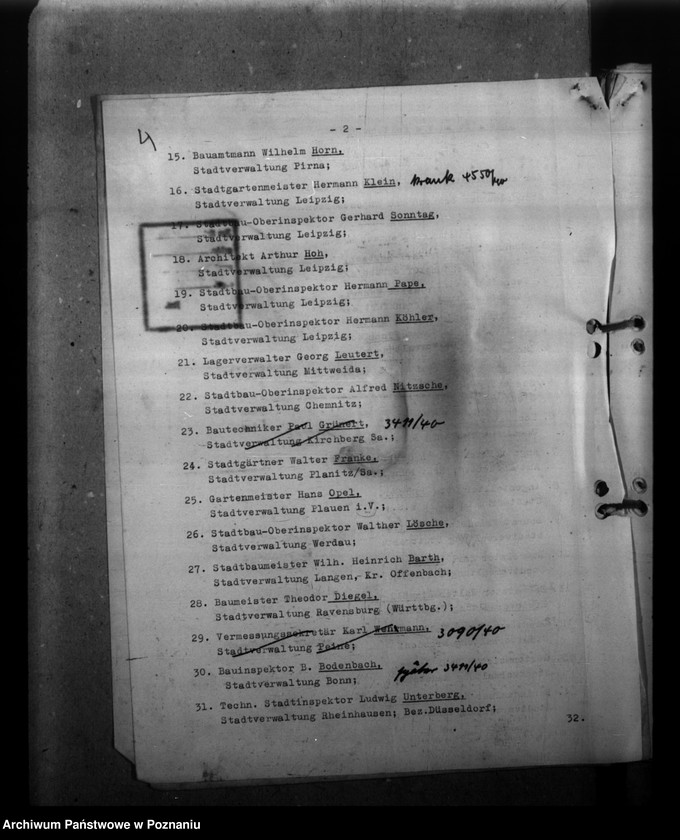 4
- 2 -
15. Bauamtmann Wilhelm Horn,
Stadtverwaltung Pirna;
16. Stadtgartenmeister Hermann Klein, krank 4550/40
Stadtverwaltung Leipzig;
17. Stadtbau-Oberinspektor Gerhard Sonntag,
Stadtverwaltung Leipzig;
18. Architekt Arthur Hoh,
Stadtverwaltung Leipzig;
19. Stadtbau-Oberinspektor Hermann Pape,
Stadtverwaltung Leipzig;
20. Stadtbau-Oberinspektor Hermann Köhler,
Stadtverwaltung Leipzig;
21. Lagerverwalter Georg Leutert,
Stadtverwaltung Mittweida;
22. Stadtbau-Oberinspektor Alfred Nitzsche,
Stadtverwaltung Chemnitz;
23. Bautechniker Paul Grünert, 3411/40
Stadtverwaltung Kirchberg Sa.;
24. Stadtgärtner Walter Franke,
Stadtverwaltung Planitz/Sa.;
25. Gartenmeister Hans Opel,
Stadtverwaltung Plauen i.V.;
26. Stadtbau-Oberinspektor Walther Lösche,
Stadtverwaltung Werdau;
27. Stadtbaumeister Wilh. Heinrich Barth,
Stadtverwaltung Langen, Kr. Offenbach;
28. Baumeister Theodor Diegel,
Stadtverwaltung Ravensburg (Württbg.);
29. Vermessungssekretär Karl 3090/40
Stadtverwaltung Peine;
30. Bauinspektor B. Bodenbach, später 3411/40
Stadtverwaltung Bonn;
31. Techn. Stadtinspektor Ludwig Unterberg,
Stadtverwaltung Rheinhausen; Bez.Düsseldorf;
32.
Archiwum Państwowe w Poznaniu